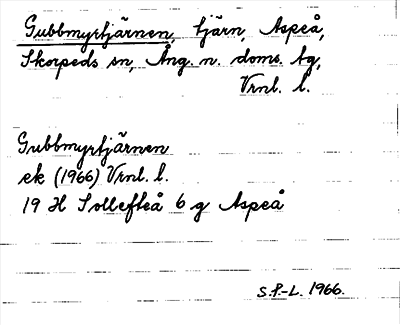 Gubbmyrtjärnen, tjärn, Aspeå,
Skorpeds sn, Ång. n. doms. tg,
Vrnl. l.
Gubbmyrtjärnen
ek (1966) Vrnl. l.
19 H Sollefteå 6 g Aspeå
S.P.-L. 1966.